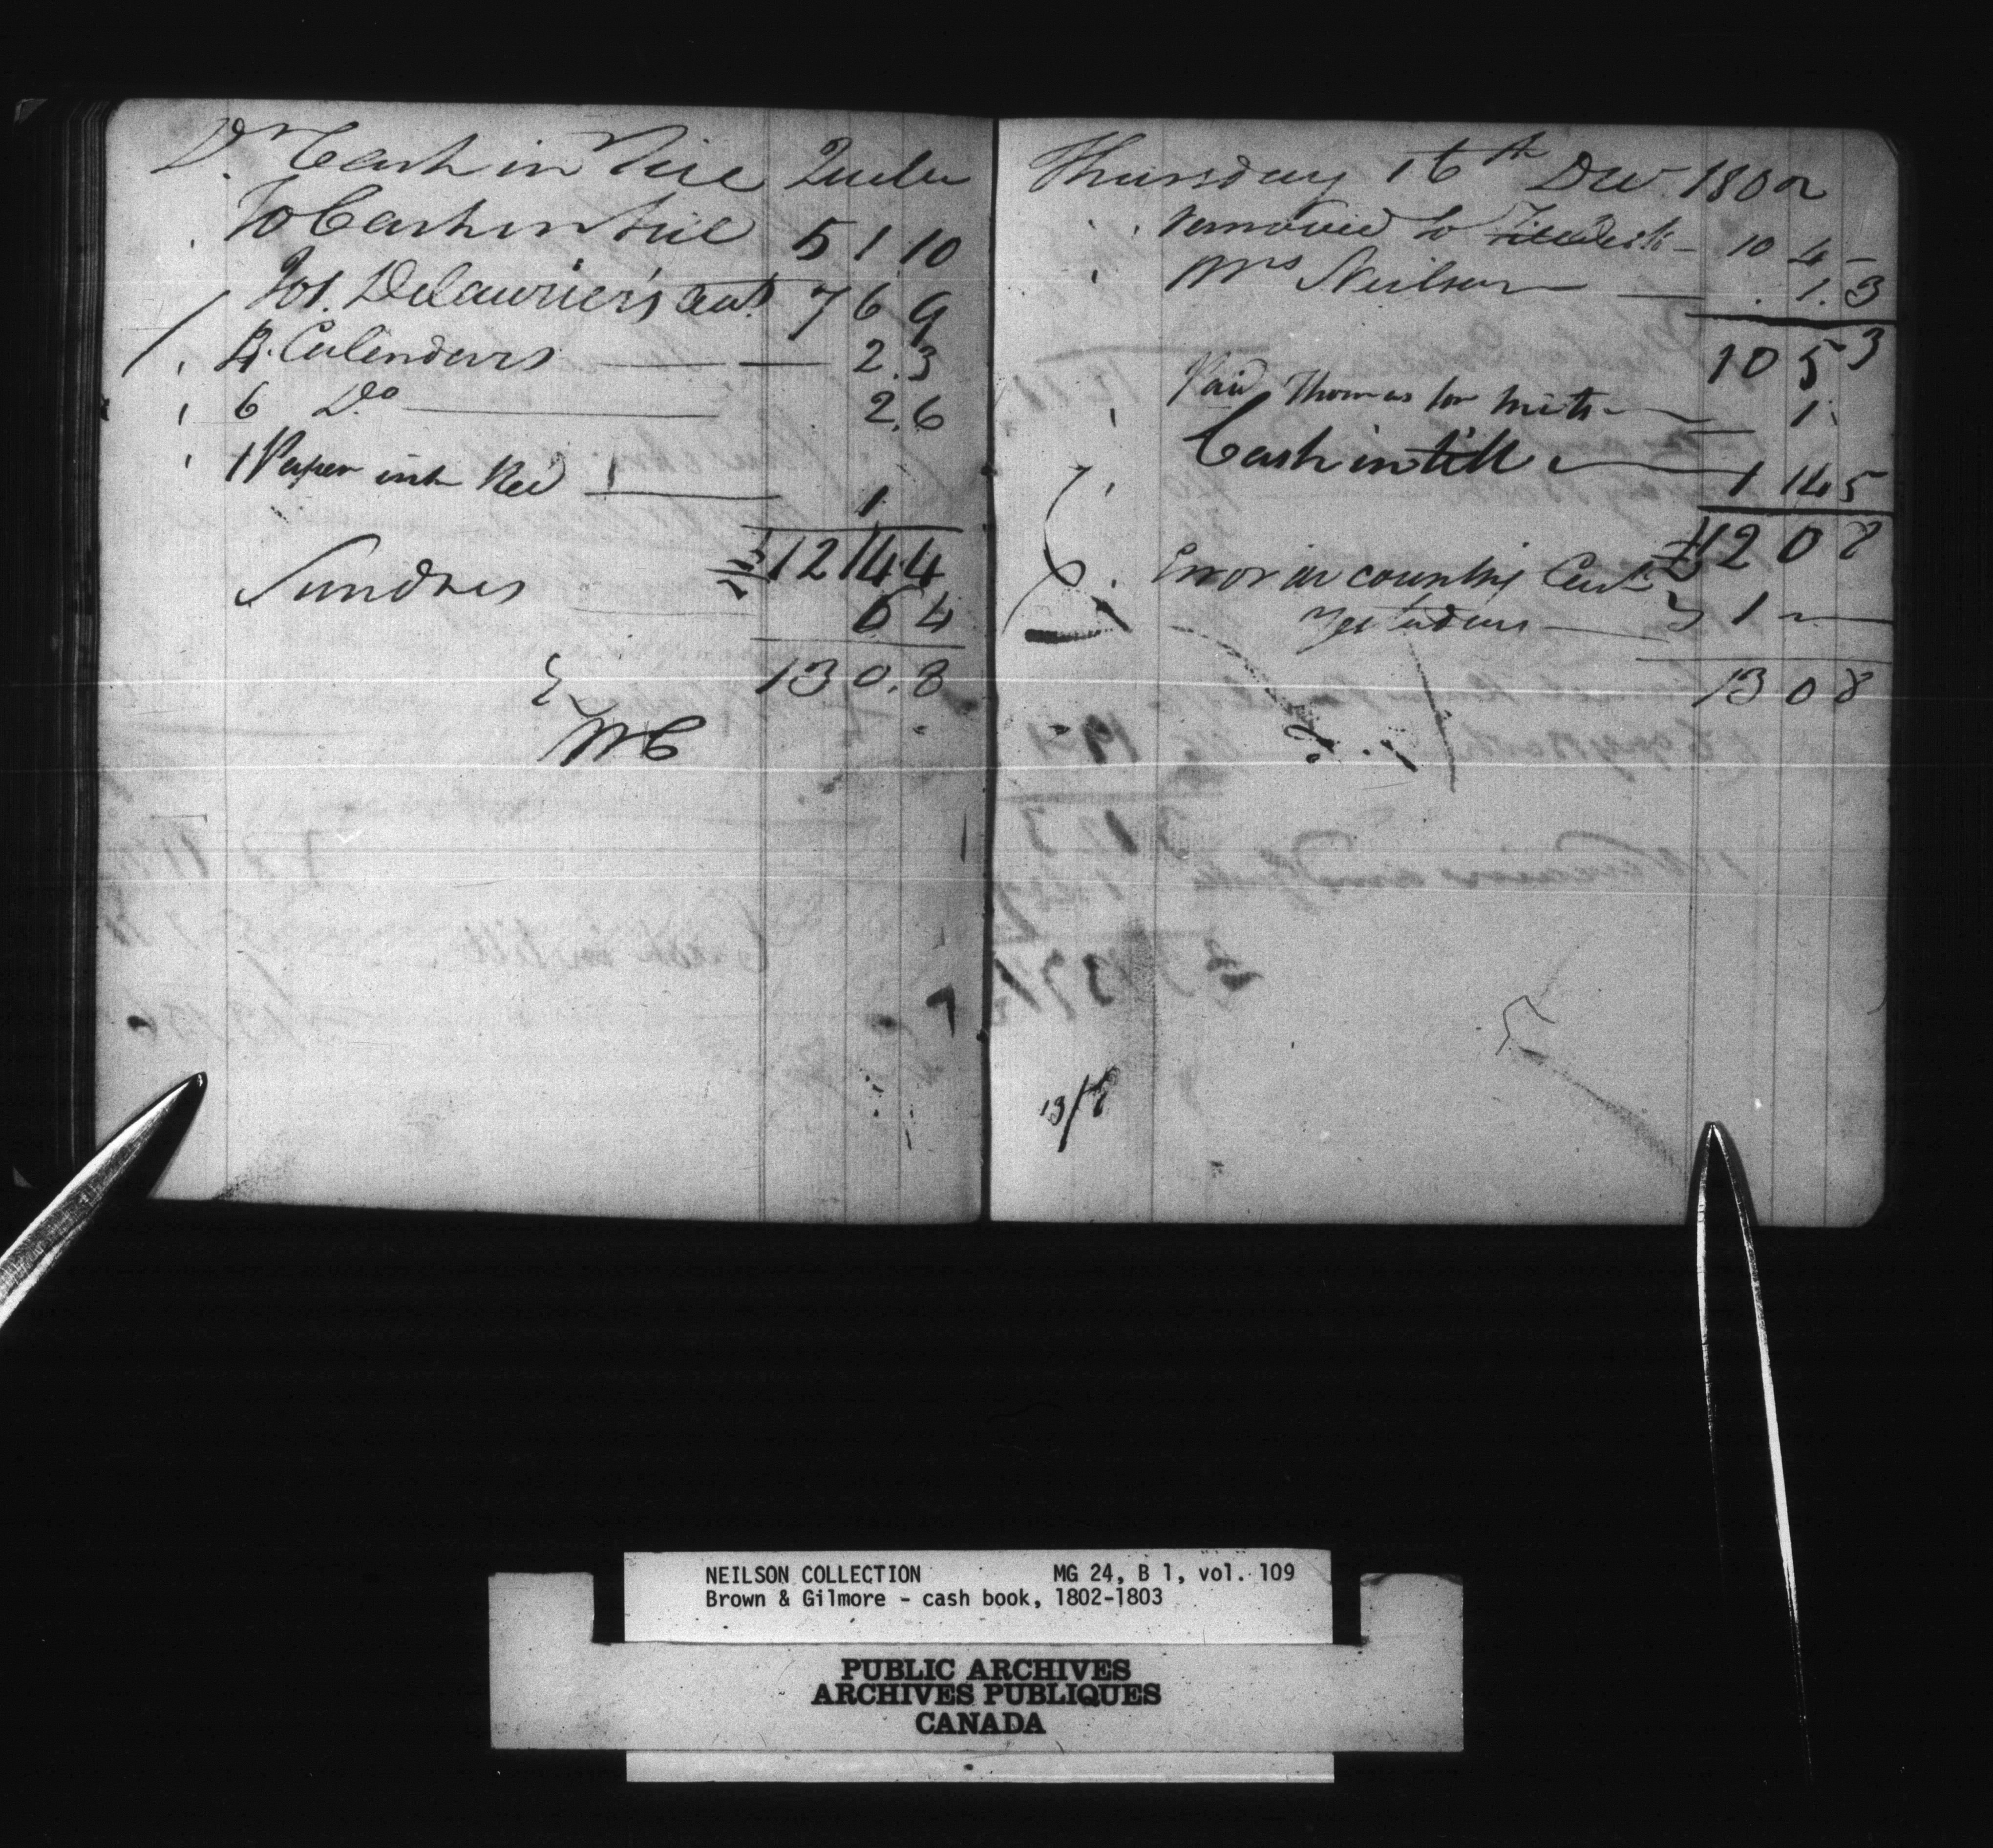 Dr Cash in Till Quebec
To Cash in till 5 1 10
Jos. Delaurier's acct 7 6 9
Calendars 2.3
6 Do 2.6
1 Paper ink Red 1
£12 14 4
Sundries 6 4
13 0.8
E
WC
Thursday 16th Decr 1802
removed to desk 10 4 -
Mrs Neilson 1.3
10 5 3
Paid Thomas for mitts 1
Cash in till 1 14 5
£12 0 8
Error in counting Cash
yesterday 1
13 0 8
13/8
NEILSON COLLECTION MG 24, B 1, vol. 109
Brown & Gilmore - cash book, 1802-1803
PUBLIC ARCHIVES
ARCHIVES PUBLIQUES
CANADA